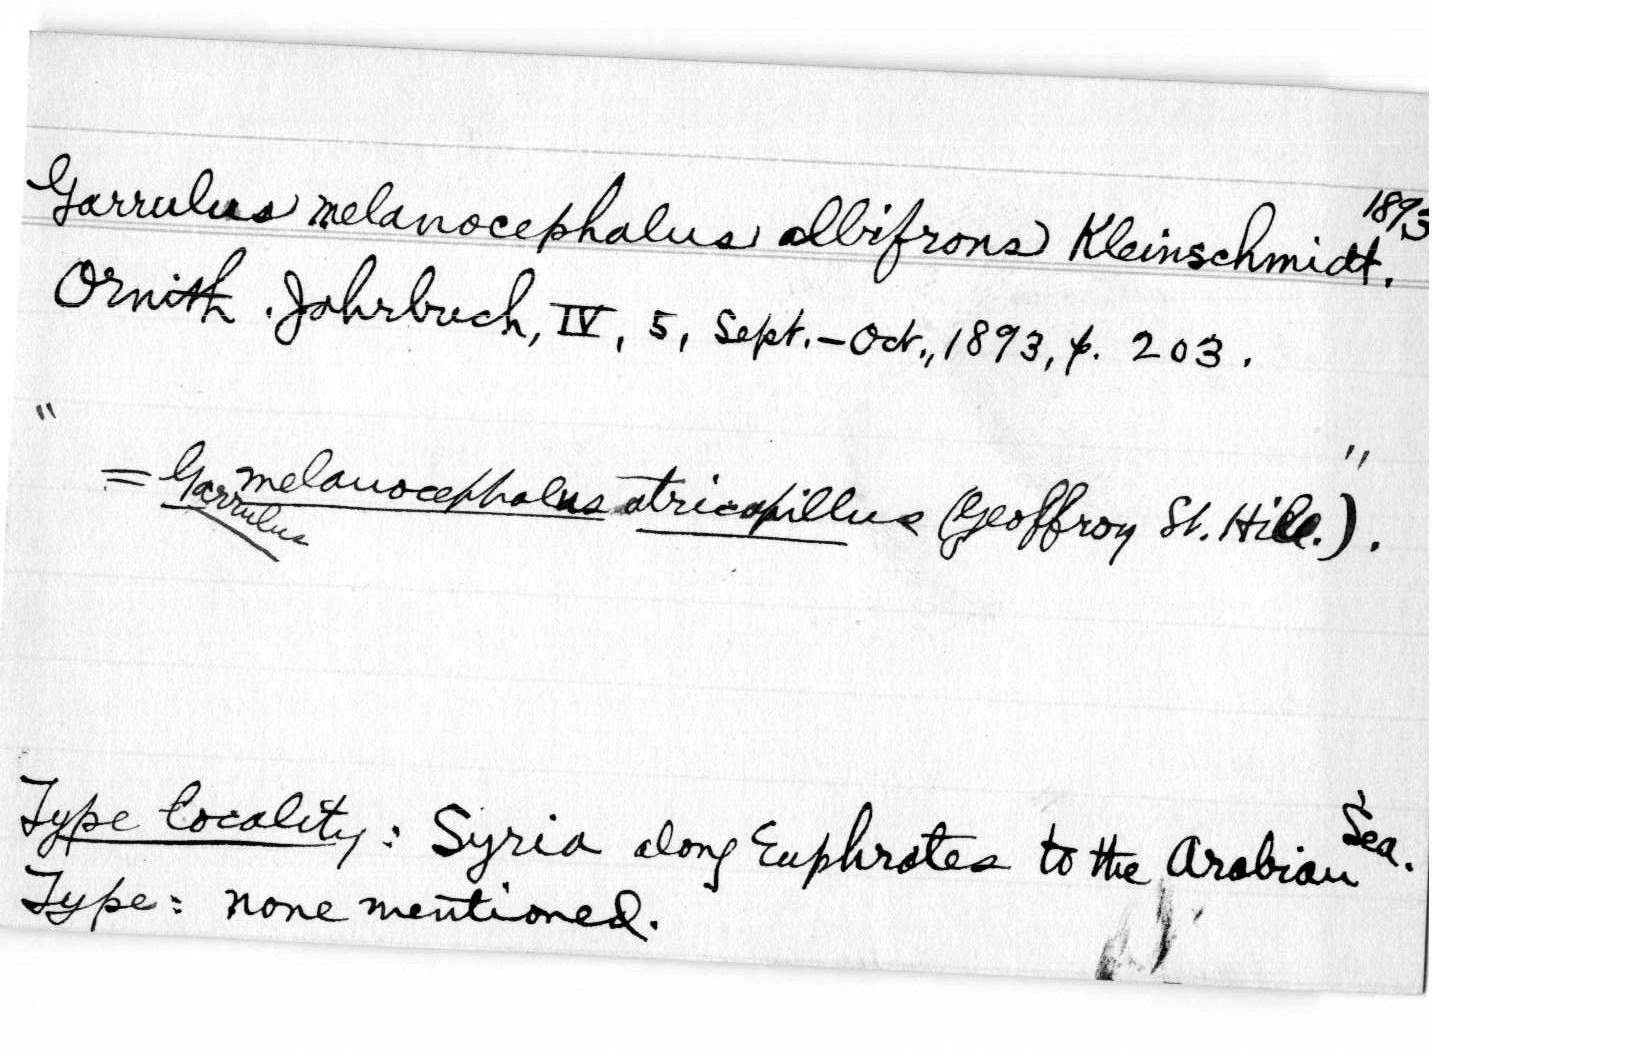 Garrulus melanocephalus albifrons Kleinschmidt. 1893
Ornith. Jahrbuch, IV, 5, Sept.–Oct., 1893, p. 203.
" "
= Garrulus melanocephalus atricapillus (Geoffroy St. Hile.).
Type locality: Syria along Euphrates to the Arabian Sea.
Type: none mentioned.